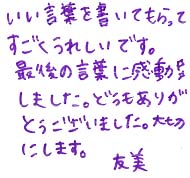 いい言葉を書いてもらって
すごくうれしいです。
最後の言葉に感動
しました。どうもありが
とうございました。大切
にします。
友美